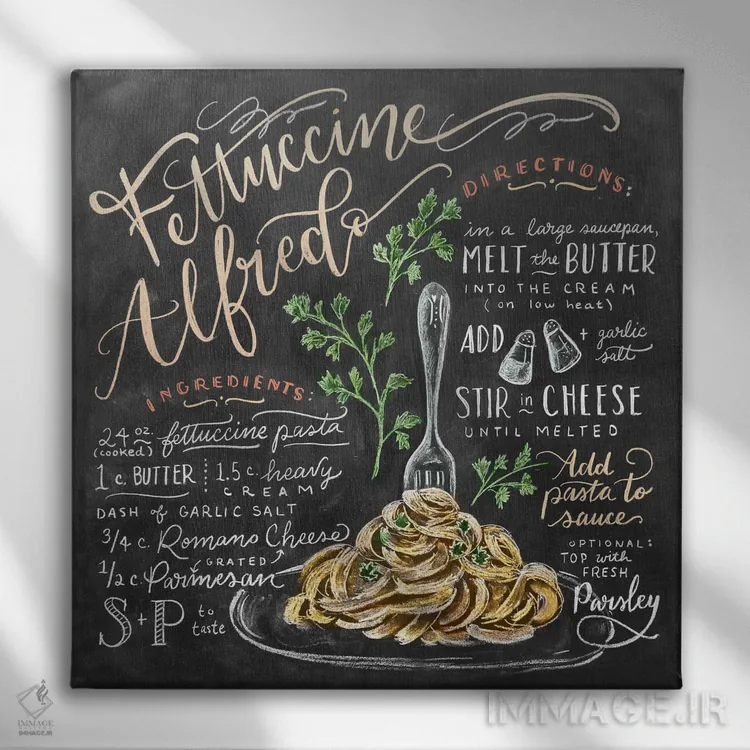 Fettuccine
Alfredo
INGREDIENTS:
24 oz. fettuccine pasta
(cooked)
1 c. BUTTER 1.5 c. heavy
CREAM
DASH of GARLIC SALT
3/4 c. Romano Cheese
GRATED
1/2 c. Parmesan
S + P to
taste
DIRECTIONS:
in a large saucepan,
MELT the BUTTER
INTO THE CREAM
(on low heat)
ADD + garlic
salt
STIR in CHEESE
UNTIL MELTED
Add
pasta to
sauce
OPTIONAL:
TOP with
FRESH
Parsley
IMMAGE
IMMAGE.IR
IMMAGE.IR